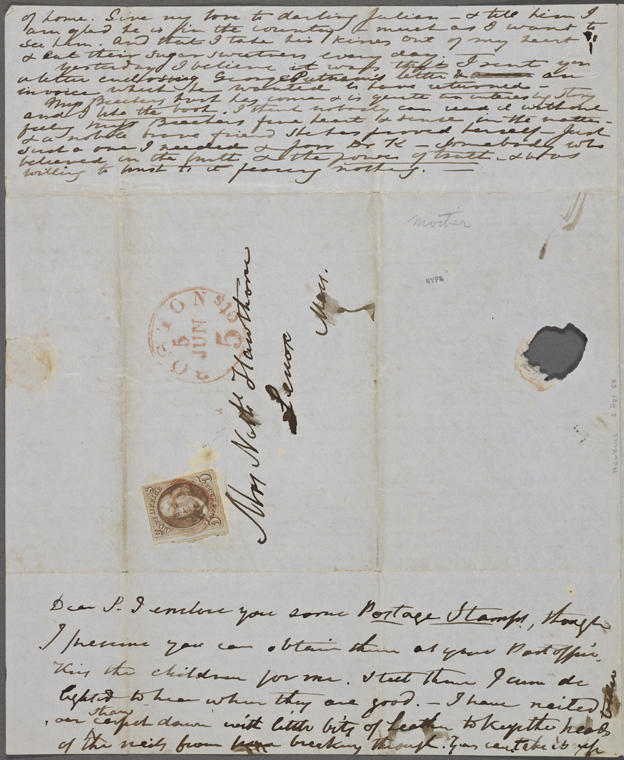 of home. Give my love to darling Julian – & tell him I
am glad he is in the country & much as I want to
see him. And that I take his kisses out of my heart
& eat their sugar every day. –
Yesterday I believe it was that I sent you
a letter enclosing George Putnam's letter & an
invoice which he wanted to have returned –
and I like the book. I think nobody can read it without
feeling Beecher's fine heart & sense in the matter –
& a noble brave friend he has proved herself – Just
Just a one I needed & from Dr K – Somebody who
believed in the truth & the power of truth – & was
willing to trust to it fearing nothing. –
mother
NYPL
BOSTON
5
JUN
5
Mrs Nathl Hawthorne
Lenox
Mass.
Dear S. I enclose you some Postage Stamps, though
I presume you can obtain them at your Postoffice.
Kiss the children for me. & tell them I am de
lighted to hear when they are good. – I have
our carpet down with little bits of leather to keep the heads
of the nails from breaking through.